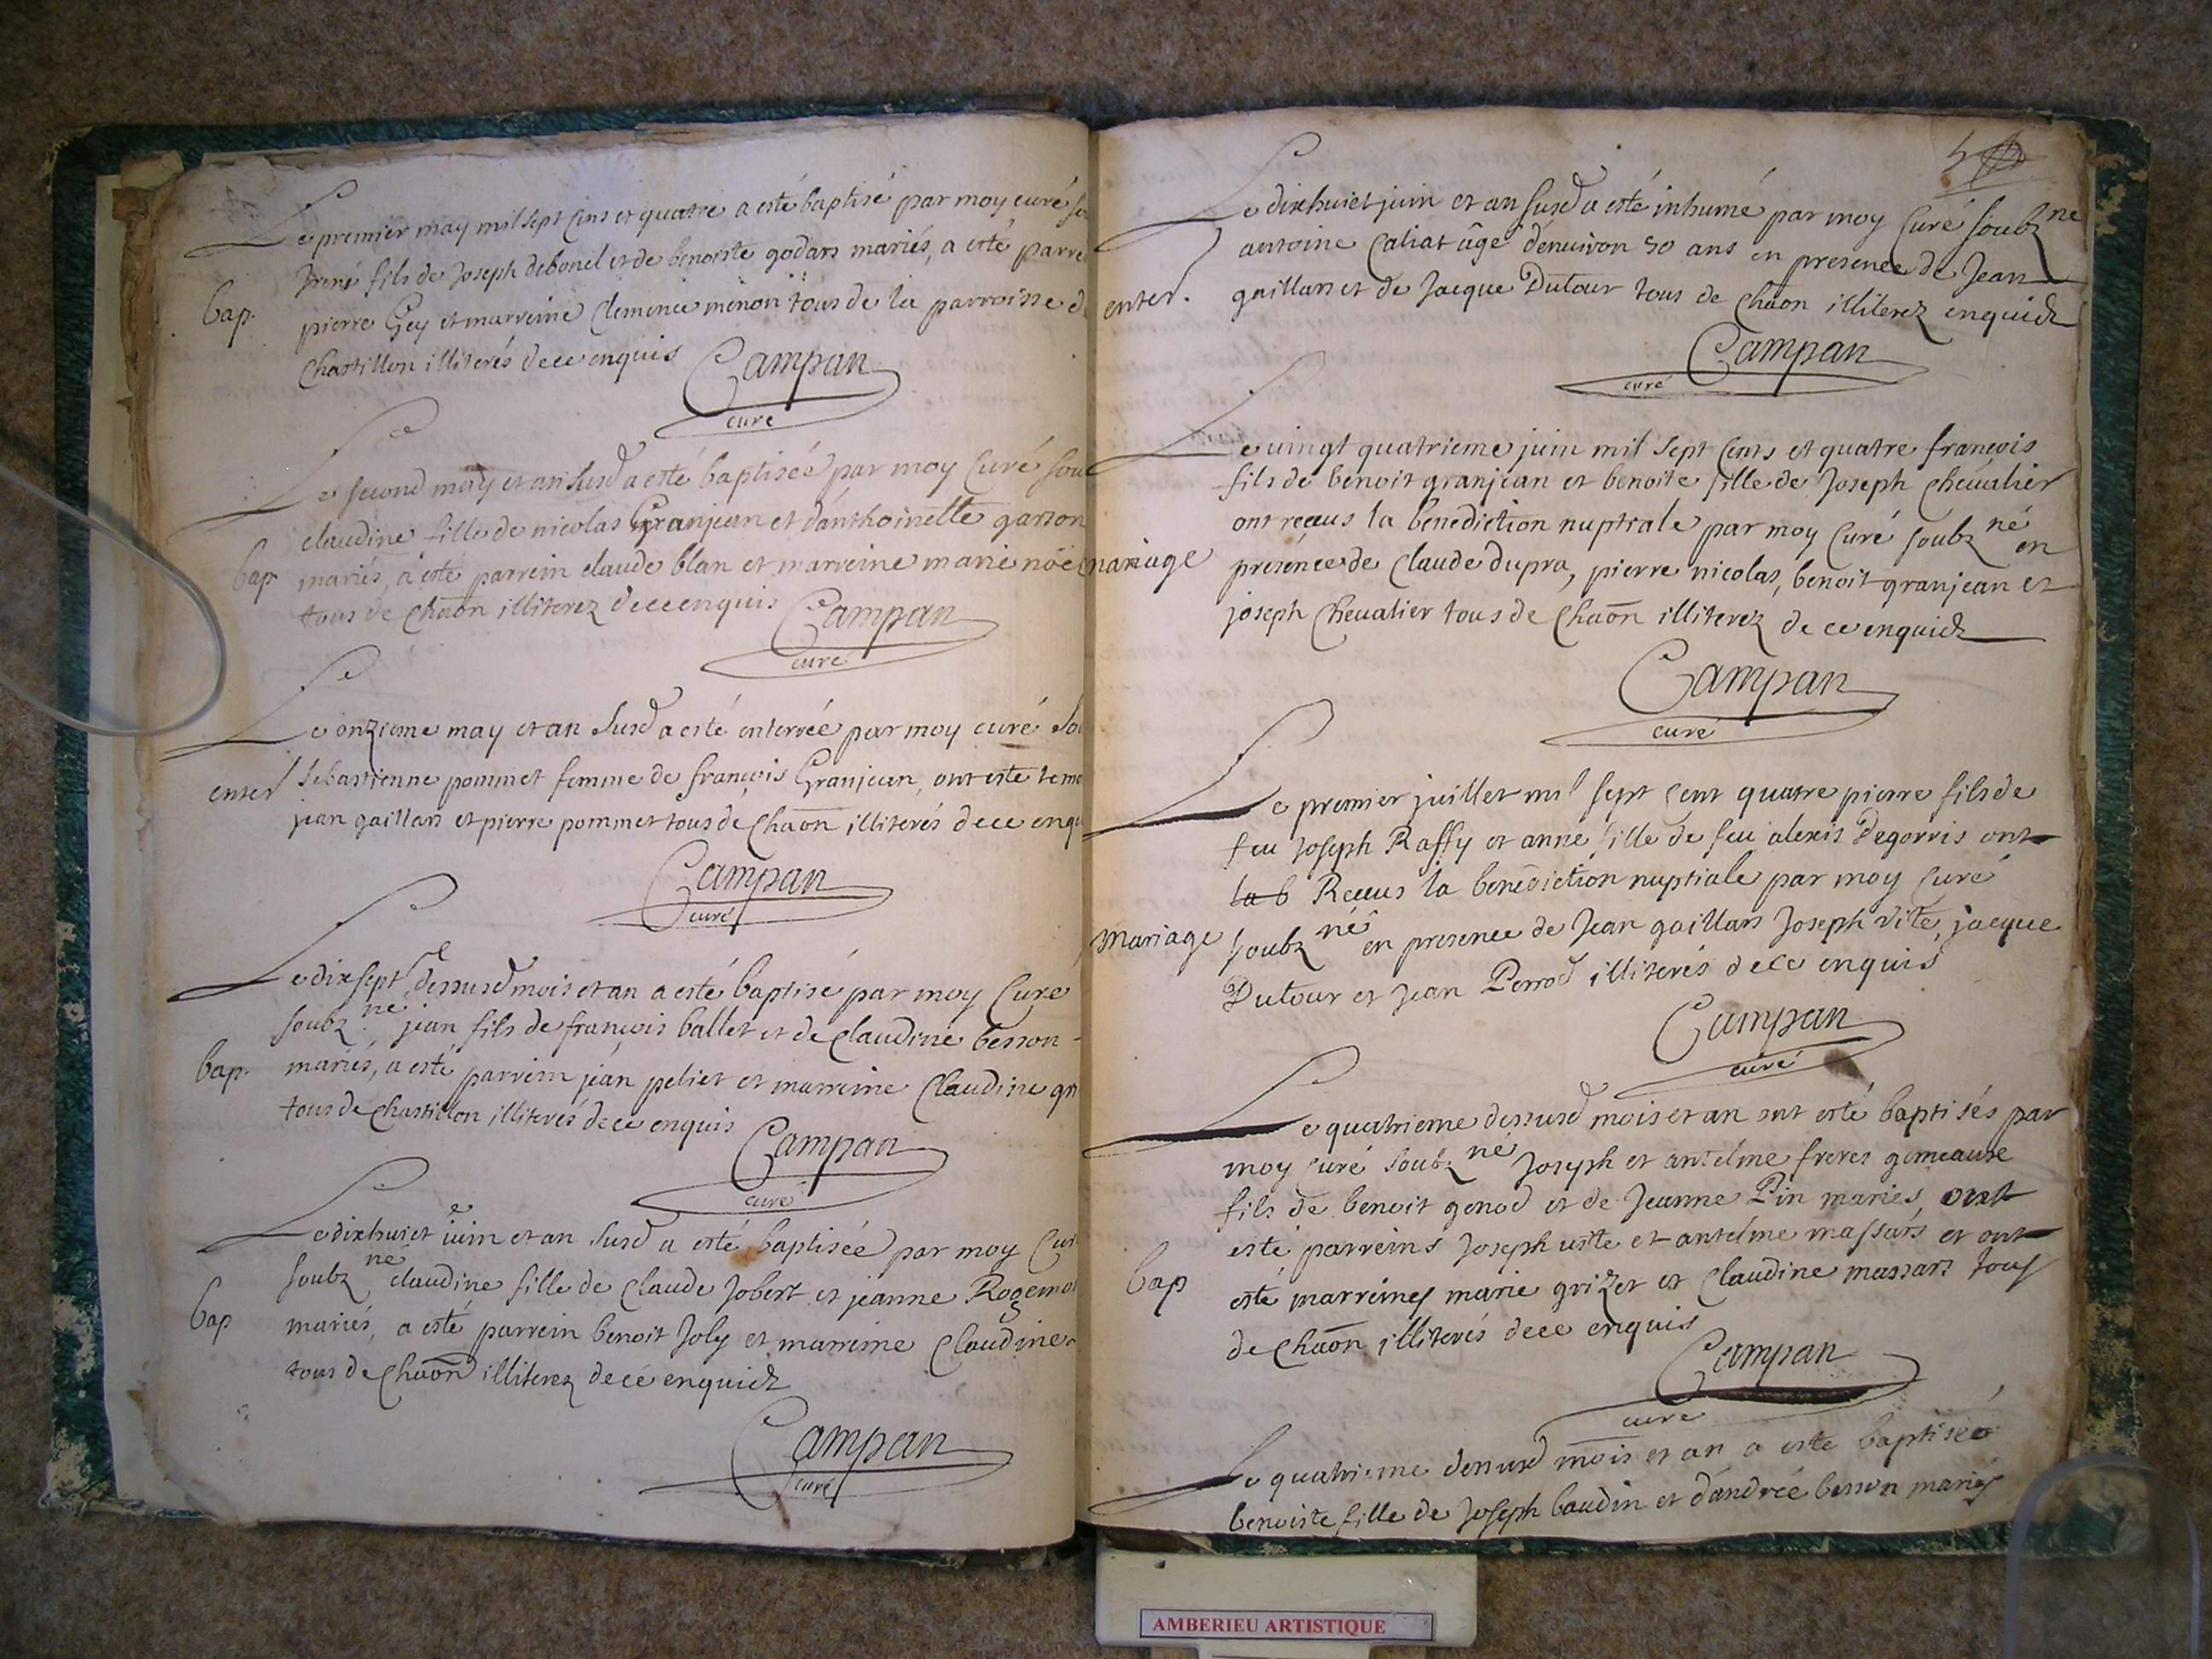 Le premier may mil sept cens et quatre a esté baptisé par moy curé
fils de Joseph debonel et de benoiste godars mariés, a esté parre
bap. pierre Gey et marreine Clemence menon tous de la parroisse de
Chastillon illiterés de ce enquis Campan
curé
Le second may et an susd a esté baptisée par moy Curé sou
claudine fille de nicolas Granjean et d'anthoinette garson
bap mariés, a esté parrein claude blan et marreine marie
tous de Chaōn illiterez de ce enquis Campan
curé
Le onzieme may et an susd a esté enterrée par moy curé so
enter sebastienne pommet femme de françois Granjean, ont este temo
jean gaillars et pierre pommet tous de Chaōn illiterés de ce enqu
Campan
curé
Le dixsept dessusd mois et an a esté baptisé par moy Curé
soubz né jean fils de françois ballet et de Claudine besson
bap. mariés, a esté parrein jean peliet et marreine Claudine
tous de Chastillon illiterés de ce enquis
Campan
curé
Le dixhuiet juin et an susd a esté baptisée par moy Cur
soubz né claudine fille de Claude Jobert et jeanne Rogemo
bap mariés, a esté parrein benoit Joly et marreine Claudine
tous de Chaōn illiterez de ce enquidz
Campan
curé
Le dixhuiet juin et an susd a esté inhumé par moy Curé soubz né
antoine Caliat âgé d'enuiron 50 ans en presence de Jean
enter. gaillars et de Jacque Dutour tous de Chaōn illiterez enquidz
Campan
curé
Le uingt quatrieme juin mil sept Cents et quatre françois
fils de benoit granjean et benoite fille de Joseph Cheualier
ont receus la benediction nuptiale par moy Curé soubz né en
mariage presence de Claude dupra, pierre nicolas, benoit granjean et
joseph Cheualier tous de Chaōn illiterez de ce enquidz
Campan
curé
Le premier juillet mil sept Cent quatre pierre fils de
feu Joseph Raffy et anne fille de feu alexis Degorris ont
la b Receus la benediction nuptiale par moy Curé
mariage soubz né en presence de Jean gaillars Joseph Vite, jacque
Dutour et Jean Perrod illiterés de ce enquis
Campan
curé
Le quatrieme dessusd mois et an ont esté baptisés par
moy Curé soubz né Joseph et antelme freres gemeaux
fils de benoit genod et de Jeanne Pin mariés, ont
esté parreins Joseph uite et antelme massars et ont
bap esté marreines marie grizet et Claudine massars tous
de Chaōn illiterés de ce enquis
Campan
curé
Le quatrieme dessusd mois et an a esté baptisée
benoiste fille de Joseph baudin et d'andrée besson mariés
AMBERIEU ARTISTIQUE